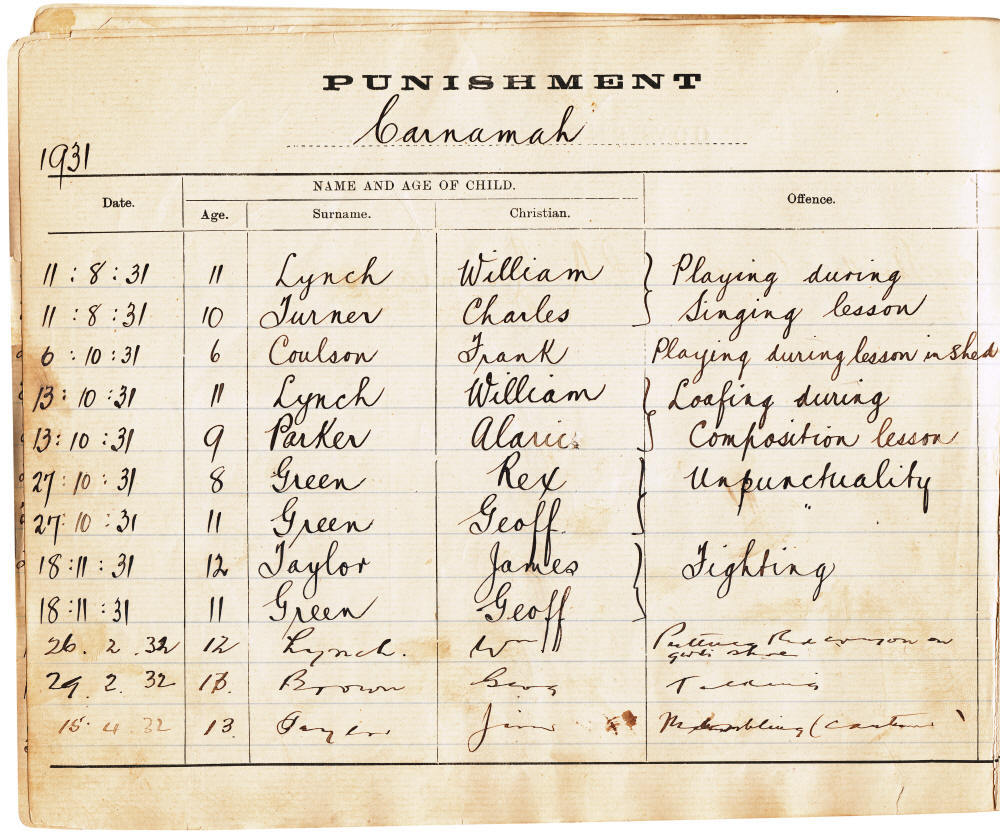 PUNISHMENT
Carnamah
1931
NAME AND AGE OF CHILD.
Date. Age. Surname. Christian. Offence.
11 : 8 : 31 11 Lynch William Playing during
11 : 8 : 31 10 Turner Charles Singing lesson
6 : 10 : 31 6 Coulson Frank Playing during lesson in shed
13 : 10 : 31 11 Lynch William Loafing during
13 : 10 : 31 9 Parker Alaric Composition lesson
27 : 10 : 31 8 Green Rex Unpunctuality
27 : 10 : 31 11 Green Geoff "
18 : 11 : 31 12 Taylor James Fighting
18 : 11 : 31 11 Green Geoff
26 . 2 . 32 12 Lynch. Wm Putting on
girls shoe
29 . 2 . 32 13. Brown Talking
15 . 4 . 32 13 Taylor Jim (caution)